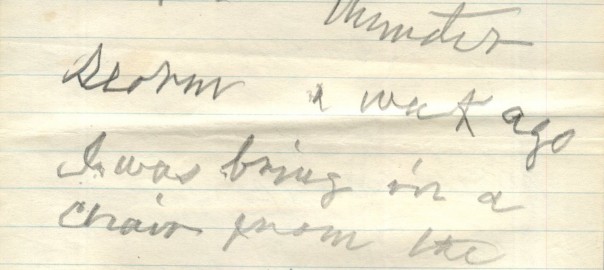 thunder
Storm a week ago
I was bring in a
chair from the